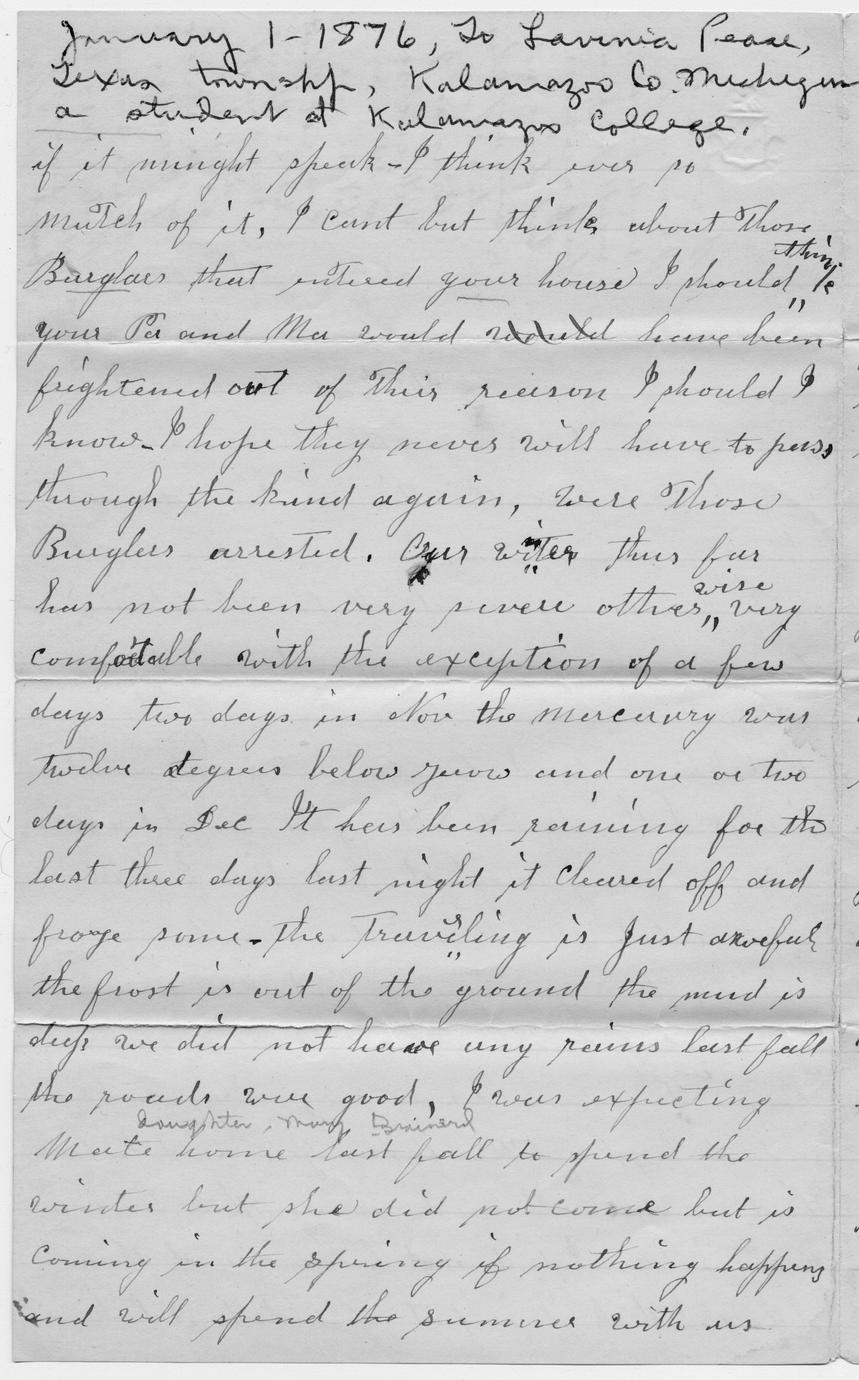 January 1 - 1876, To Lavinia Pease,
Texas township, Kalamazoo Co. Michigan
a student at Kalamazoo College.
if it minght speak - I think ever so
mutch of it, I cant but think about those
think
Burglars that entered your house I should
your Pa and Ma would would have been
frightened out of their reason I should I
know - I hope they never will have to pass
through the kind again, were those
Burglers arrested. Our winter thus far
wise
has not been very severe other very
comfortable with the exception of a few
days two days in Nov the mercurry was
twelve degrees below zerow and one or two
days in Dec It has been raining for the
last three days last night it cleared off and
froze some - the traveling is Just aweful
the frost is out of the ground the mud is
deep we did not have any rains last fall
the roads were good, I was expecting
daughter, Mary Brainerd
Mate home last fall to spend the
winter but she did not come but is
coming in the spring if nothing happens
and will spend the summer with us